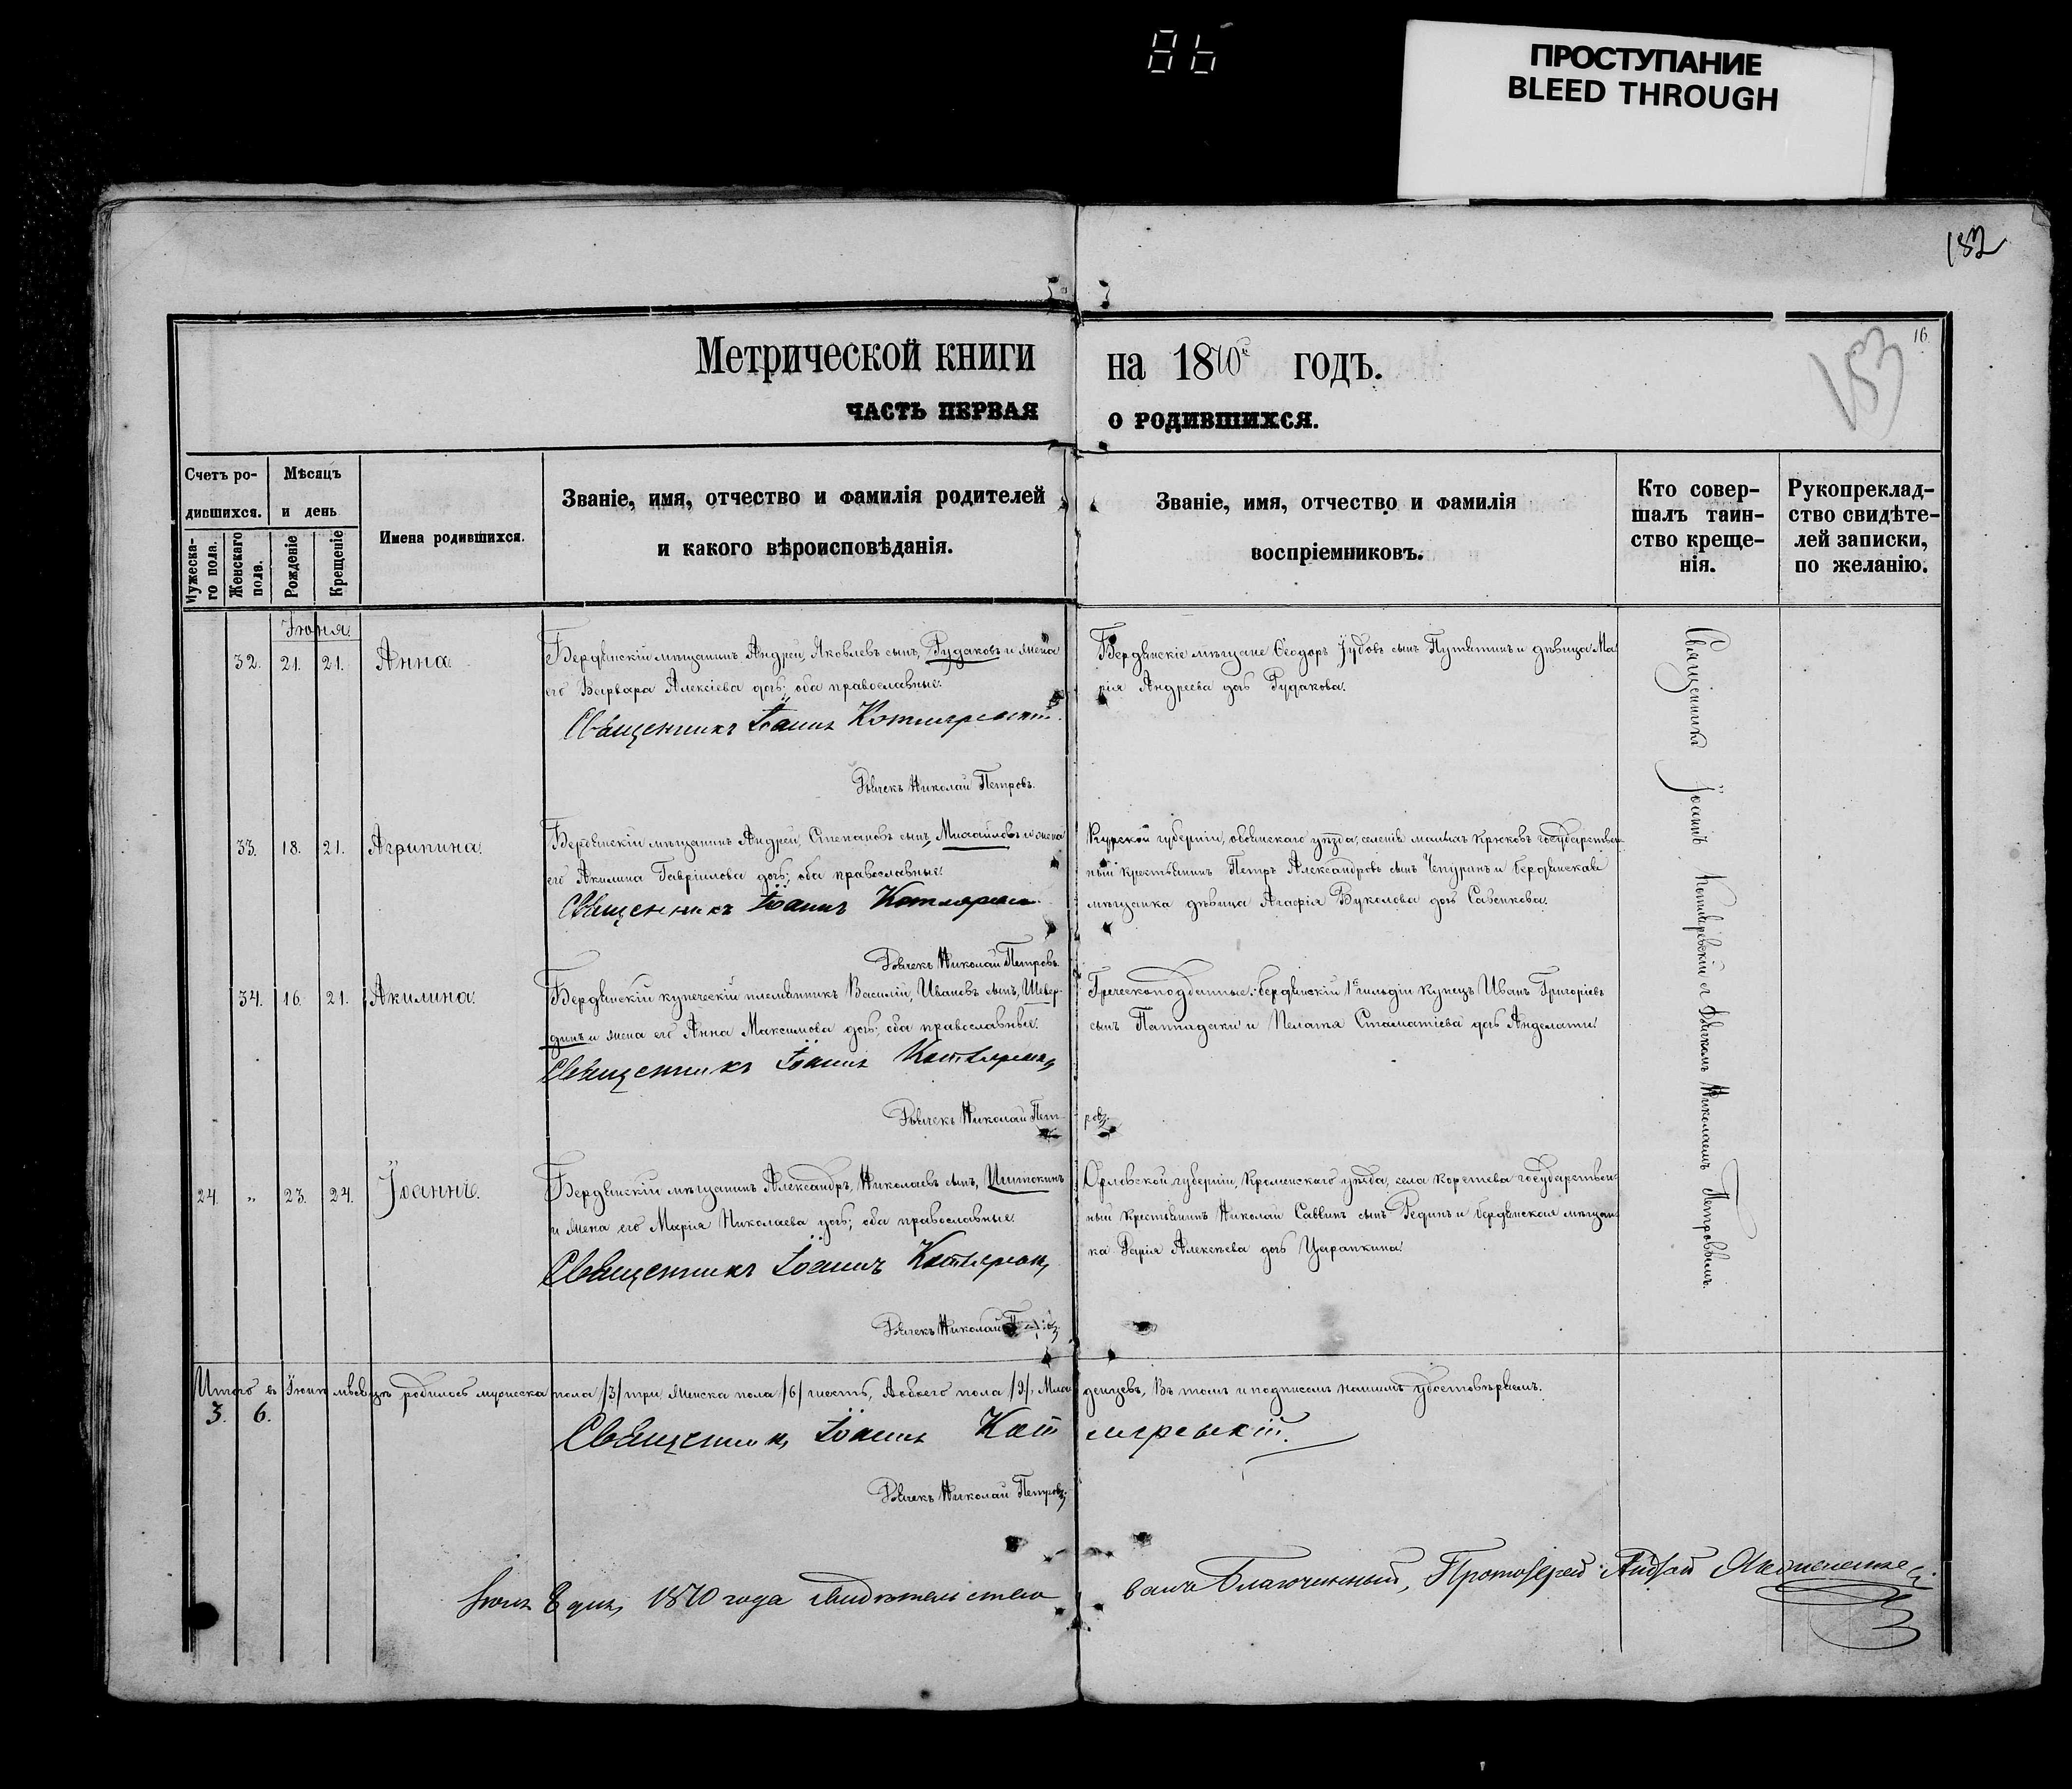 86
ПРОСТУПАНИЕ
BLEED THROUGH
182
16.
183
Метрической книги на 1870й годъ.
ЧАСТЬ ПЕРВАЯ О РОДИВШИХСЯ.
Счетъ родившихся.
Мѣсяцъ и день
Мужескаго пола.
Женскаго пола.
Рожденіе
Крещеніе
Имена родившихся.
Званіе, имя, отчество и фамилія родителей
и какого вѣроисповѣданія.
Званіе, имя, отчество и фамилія
воспріемниковъ.
Кто совершалъ таинство крещенія.
Рукоприкладство свидѣтелей записки, по желанію.
Іюня.
32. 21. 21. Анна.
Бердянскій мѣщанинъ Андрей, Яковлевъ сынъ, Рудаковъ и жена
его Варвара Алексіева дочь; оба православные.
Священникъ Іоаннъ Котляревскій.
Дьячекъ Николай Петровъ.
Бердянскіе мѣщане Ѳеодоръ Іудовъ сынъ Путятинъ и дѣвица Ма
рія Андреева дочь Рудакова.
33. 18. 21. Агрипина.
Бердянскій мѣщанинъ Андрей, Степановъ сынъ, Михайловъ и жена
его Акилина Гавріилова дочь; оба православные.
Священникъ Іоаннъ
Дьячекъ Николай Петровъ.
Курской губерніи, обоянскаго уѣзда, селенія малыхъ крюковъ государствен
ный крестьянинъ Петръ Александровъ сынъ Чепуринъ и бердянская
мѣщанка дѣвица Агафія Вуколова дочь Савенкова.
34. 16. 21. Акилина.
Бердянскій купеческій племянникъ Василій, Ивановъ сынъ, Швер-
динъ и жена его Анна Максимова дочь; оба православные.
Священникъ Іоаннъ
Дьячекъ Николай Пет
ровъ.
Греческоподданные: бердянскій 1й гильдіи купецъ Иванъ Григоріевъ
сынъ Паппадаки и Пелагія Стаматіева дочь Анделати.
24. „ 23. 24. Іоаннъ.
Бердянскій мѣщанинъ Александръ, Николаевъ сынъ, Шитокинъ
и жена его Марія Николаева дочь; оба православные.
Священникъ Іоаннъ
Дьячекъ Николай
Орловской губерніи, Кромскаго уѣзда, села государствен
ный крестьянинъ Николай Саввинъ сынъ Рединъ и бердянская мѣщан
ка Дарія Алексѣева дочь Царапкина.
Священникъ Іоаннъ Котляревскій съ дьячкомъ Николаемъ Петровымъ.
Итого въ Іюнѣ мѣсяцѣ родилось мужеска пола /3/ три, женска пола /6/ шесть, а обоего пола /9/. Мла денцевъ, Въ томъ и подписомъ нашимъ удостовѣряемъ.
3. 6.
Священникъ Іоаннъ Кот ляревскій.
Дьячекъ Николай Петровъ.
8 дня, 1870 года свидѣтельство валъ Благочинный, Протоіерей